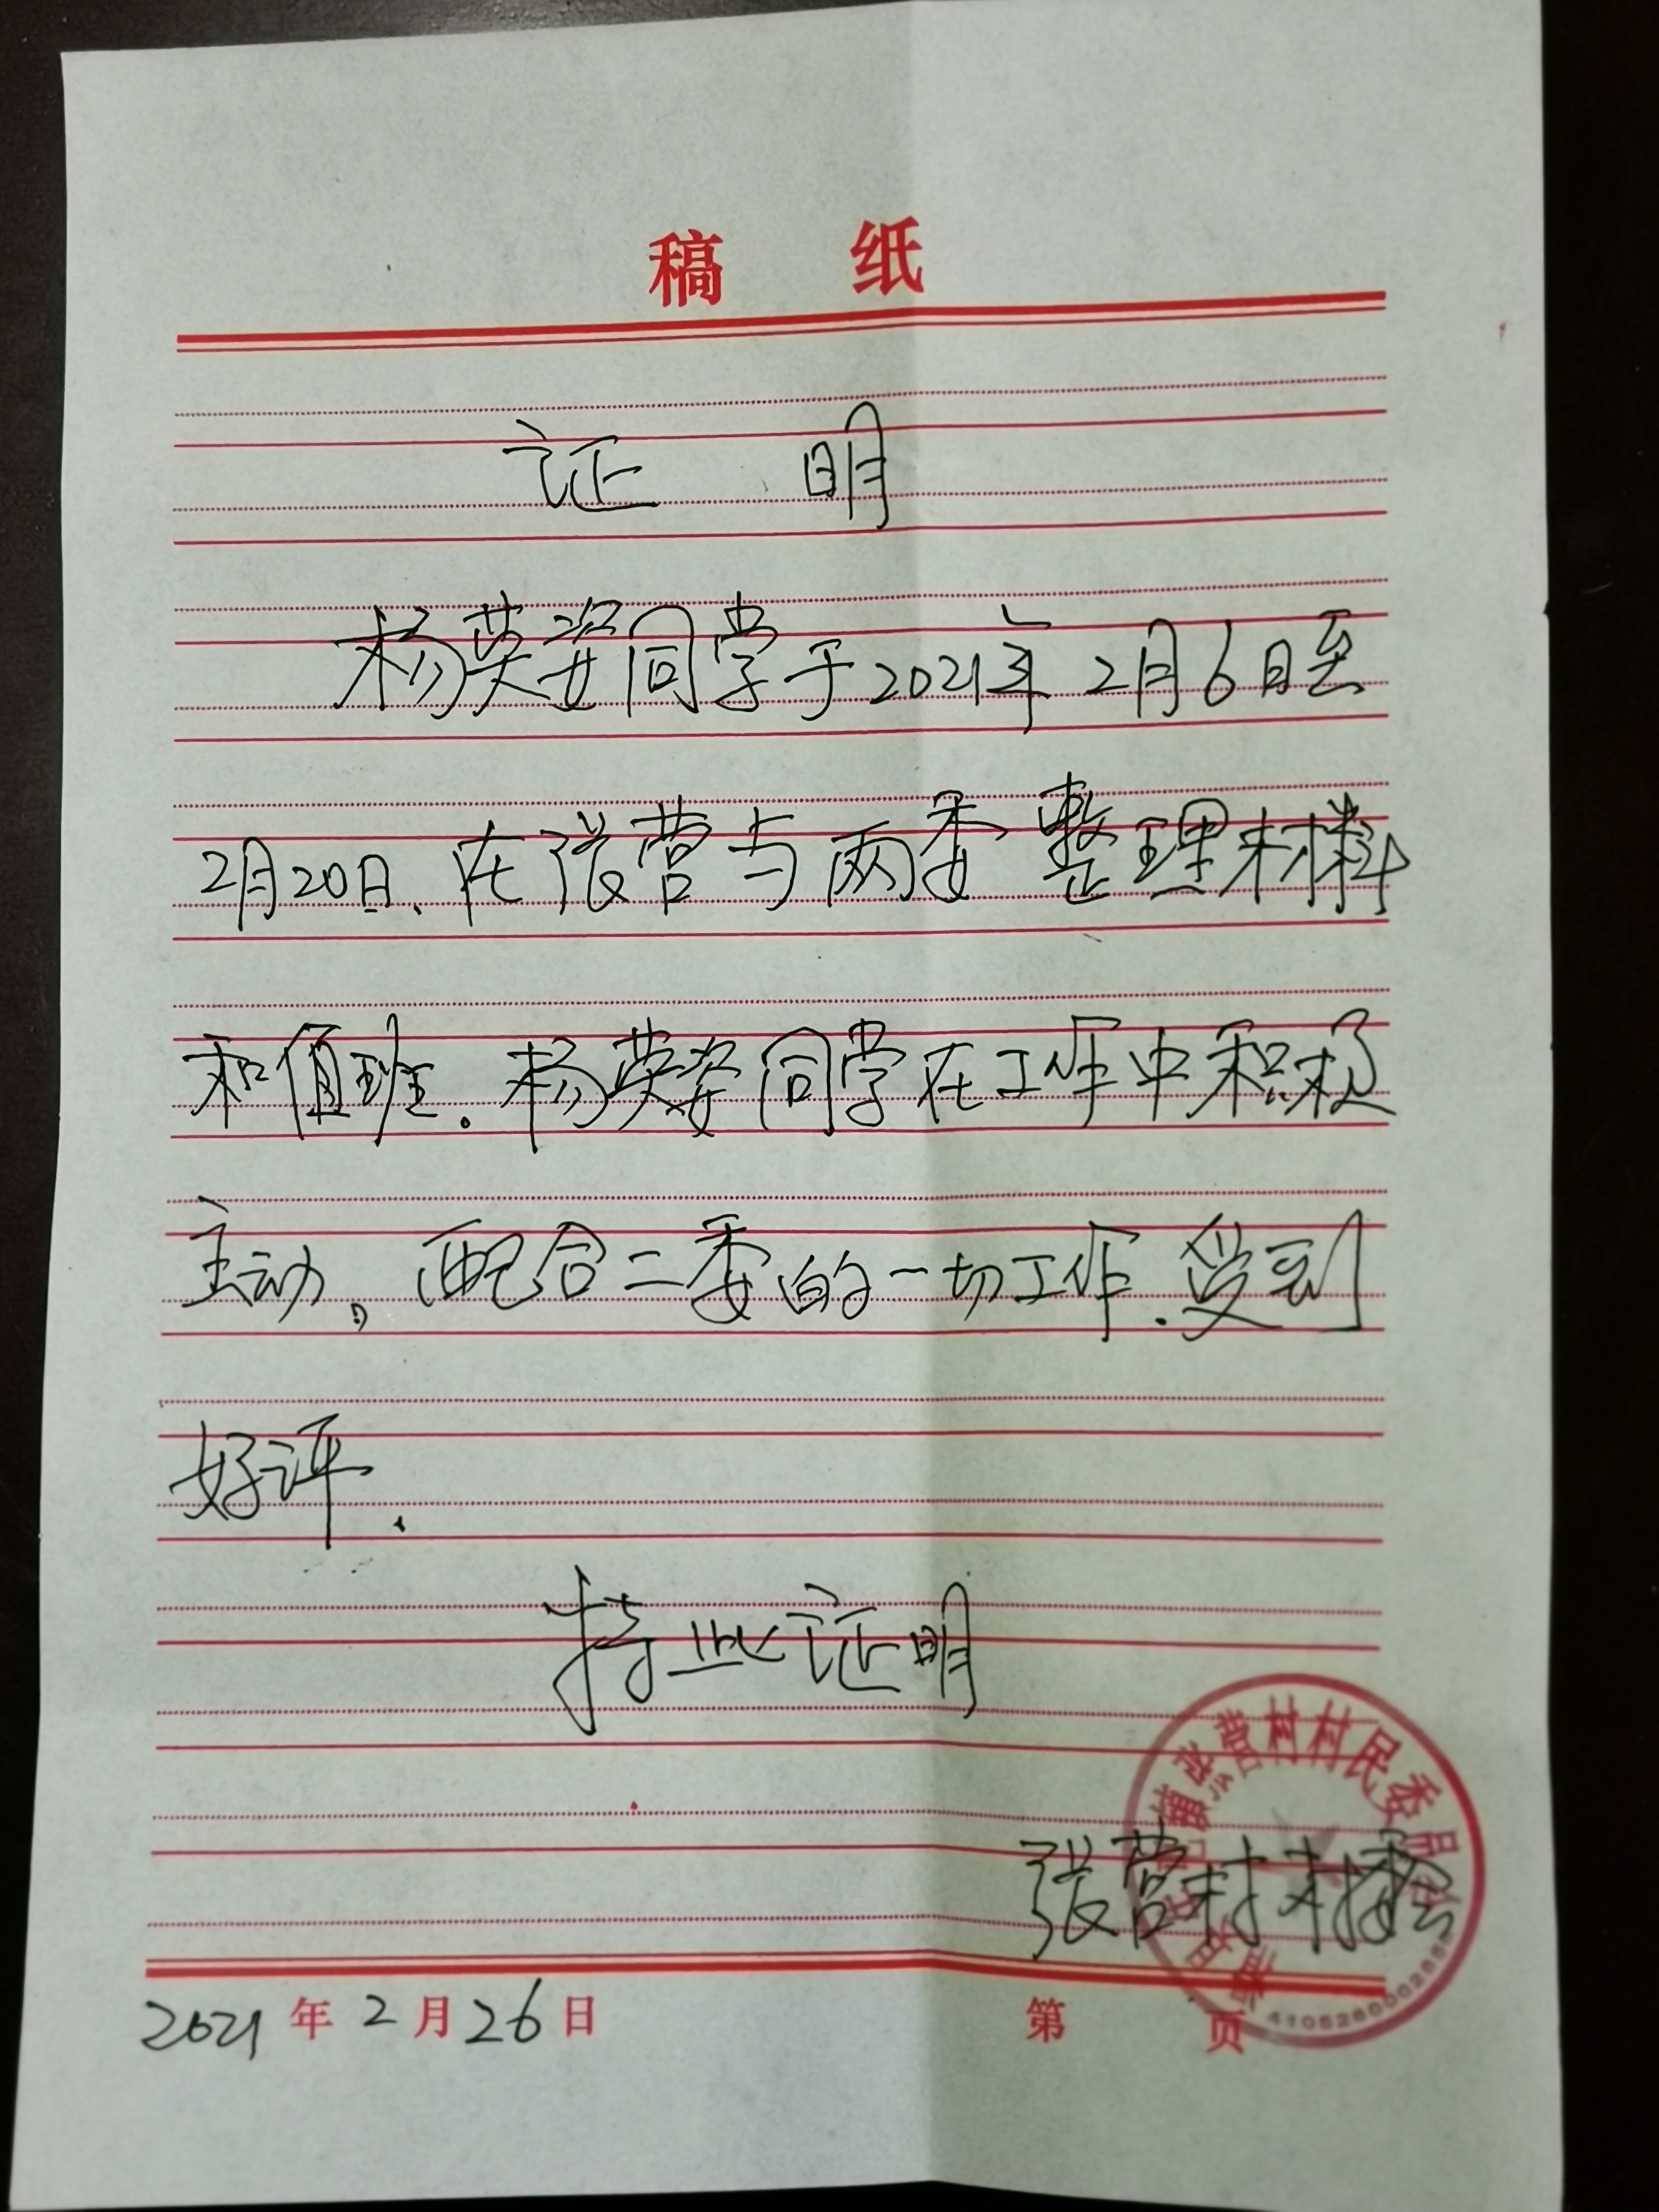 稿 纸
证 明
杨英姿同学于2021年2月6日至
2月20日、在张营与两委整理材料
和值班。杨英姿同学在工作中积极
主动,配合二委的一切工作.受到
好评.
特此证明
张营村村委会
张营村村民委员会
2021年2月26日 第 页